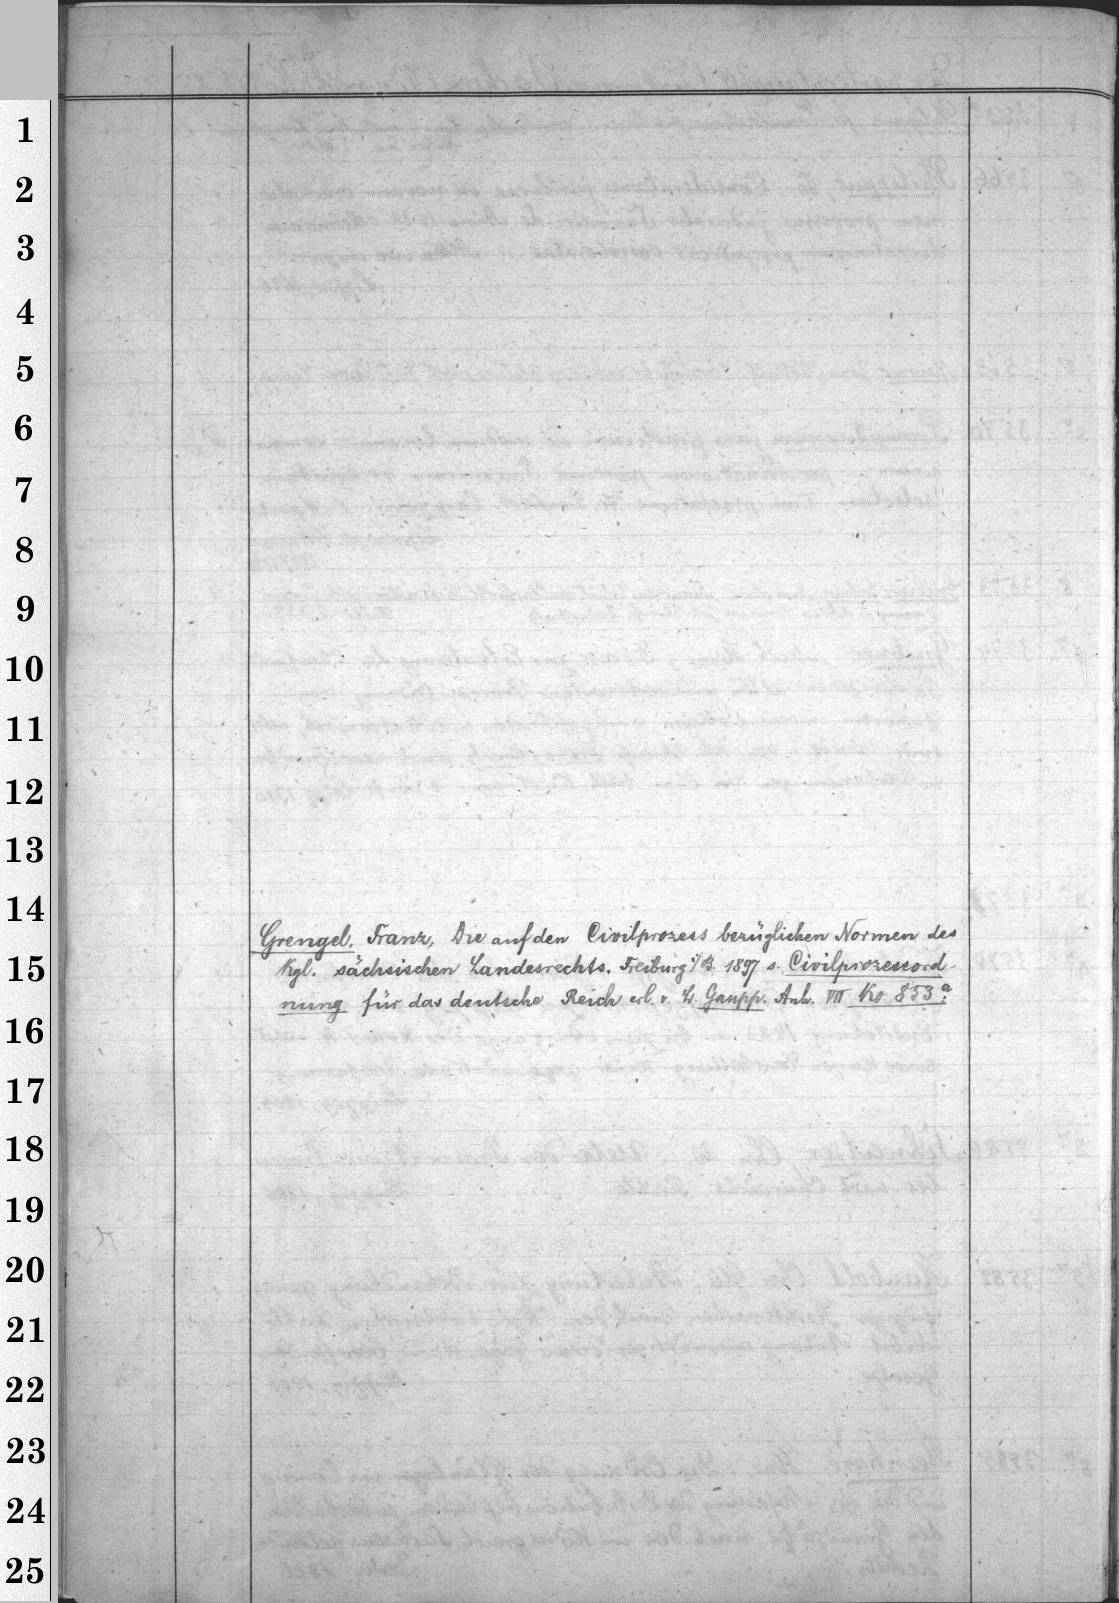 1
2
3
4
5
6
7
8
9
10
11
12
13
14
Grengel, Franz, Die auf den Civilprozess bezüglichen Normen des
15
Kgl. sächsischen Landesrechts. Freiburg i/B. 1897 s. Civilprozessord-
nung für das deutsche Reich erl. v. L. Gaupp. Anh. VII Ko 853a.
16
17
18
19
20
21
22
23
24
25